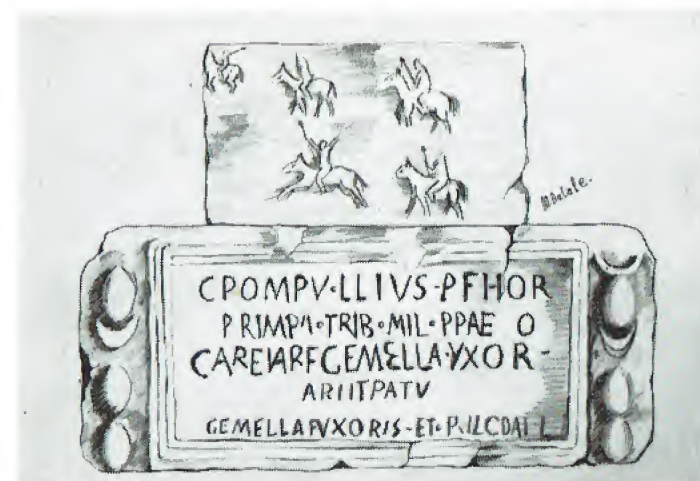 CPOMPV·LLIVS·PFHOR
PRIMPI·TRIB·MIL·PPAE O
CAREIARFGEMELLA·VXOR-
ARIITPATV
GEMELLAFVXORIS-ET·